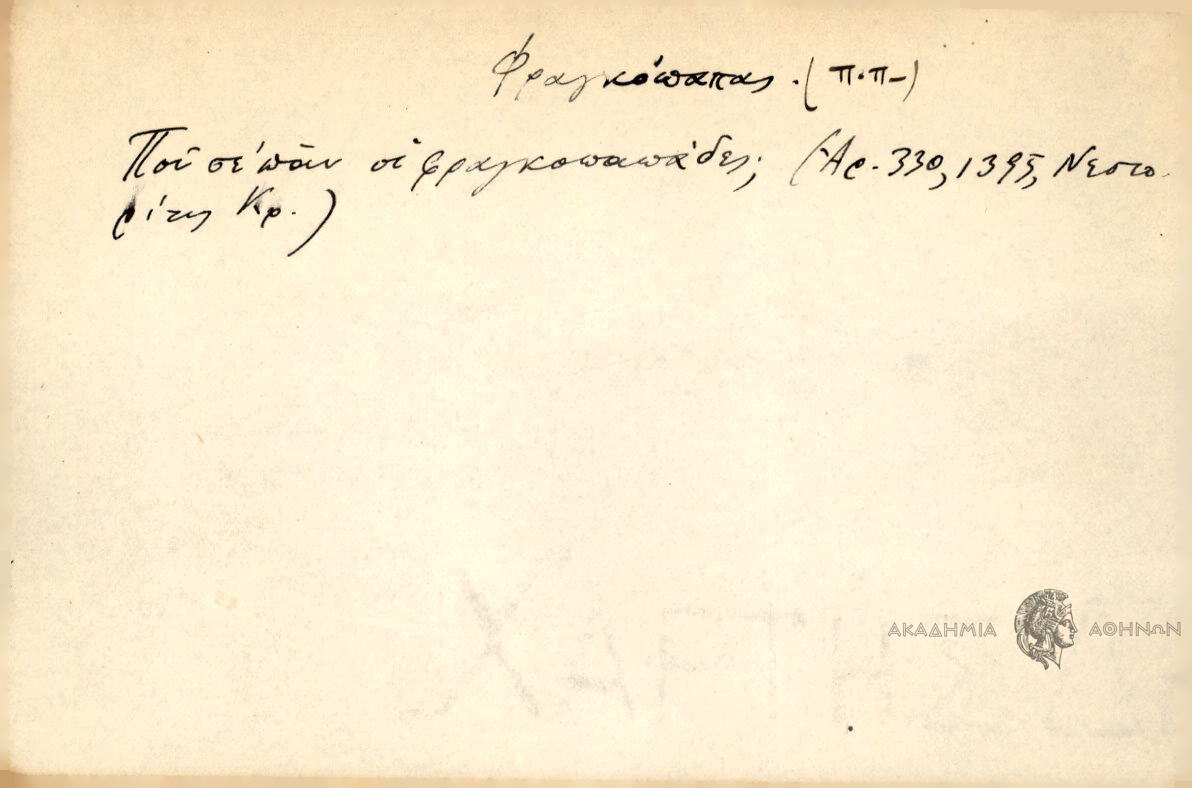 Φραγκόπαπας. (π.π-)
Ποῦ σέ 'πᾶν οἱ φραγκοπαπάδες; (Ἀρ. 330, 1395, Νεστο-
ρίτης Κρ.)
ΑΚΑΔΗΜΙΑ ΑΘΗΝΩΝ